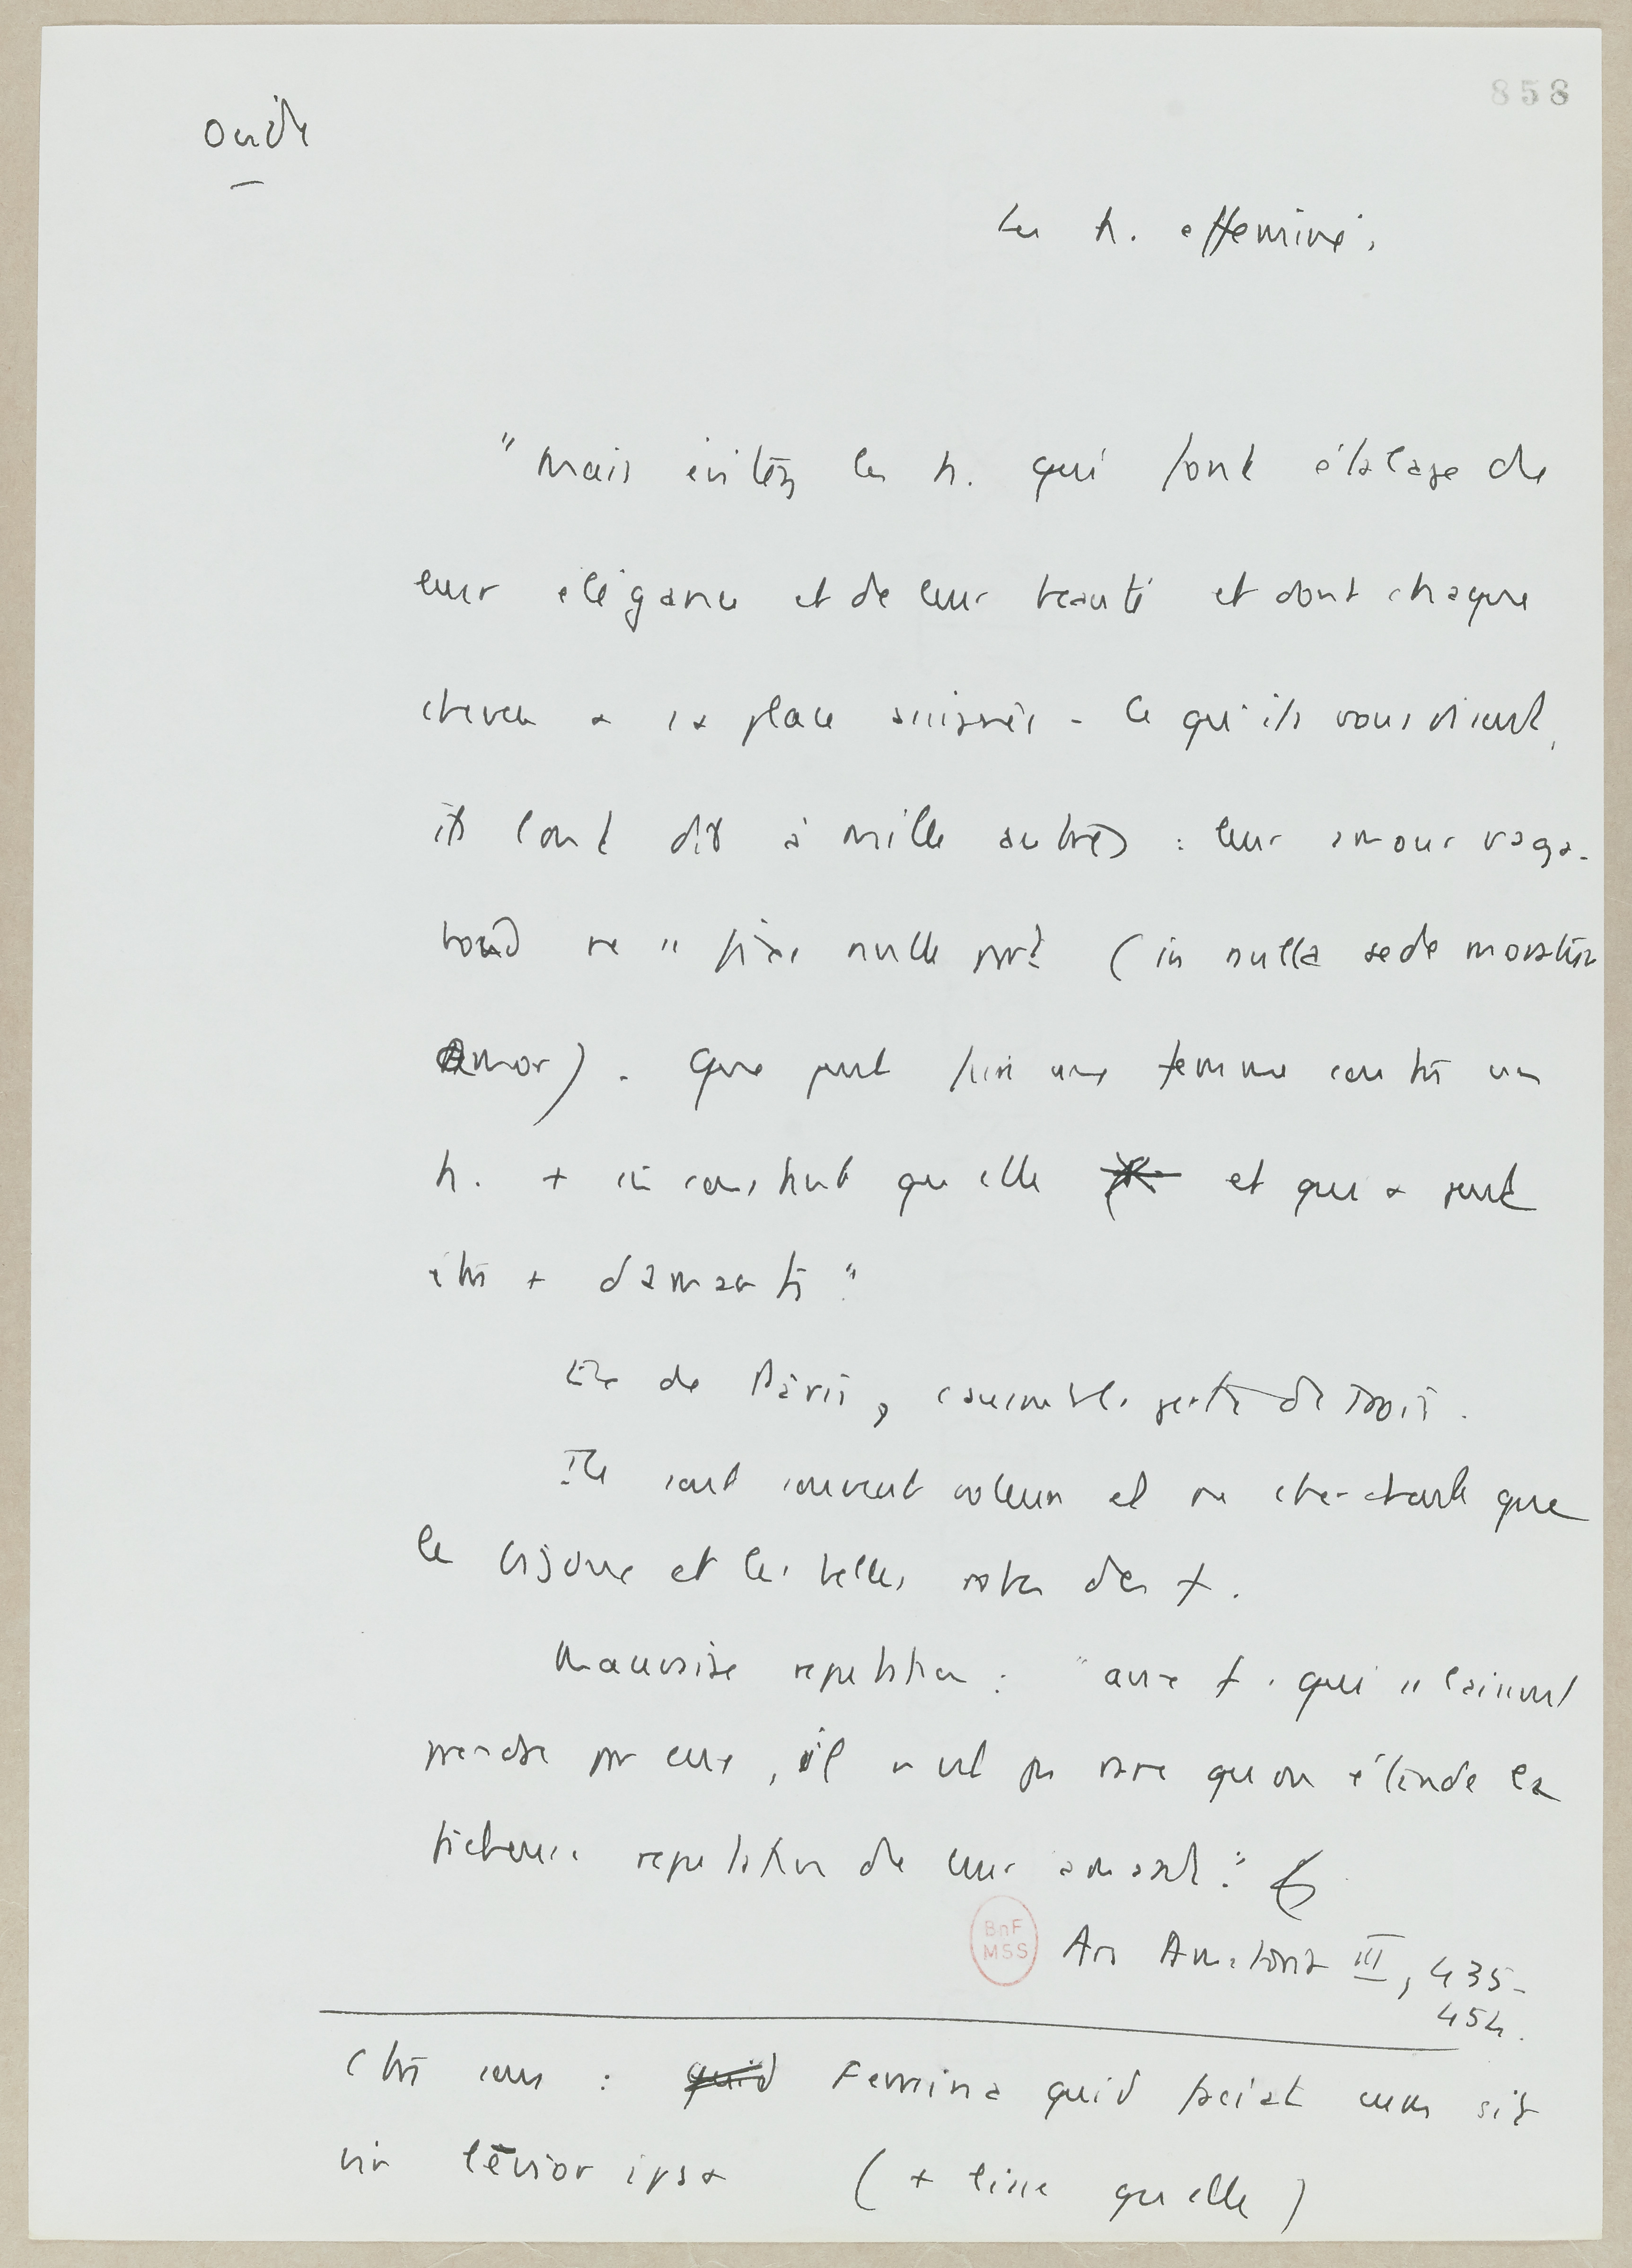 858
Ovide
Les h. efféminés.
"Mais évitez les h. qui font étalage de
leur élégance et de leur beauté et dont chaque
cheveu a sa place assignée - Ce qu'ils vous disent,
ils l'ont dit à mille autres : leur amour vaga-
bond ne se fixe nulle part (in nulla sede moratur
Amor). Que peut faire une femme contre un
h. + inconstant qu'elle et qui a peut
être + d'amants"
de Paris,
Ils sont souvent voleurs et ne cherchent que
les bijoux et les belles robes des f.
Mauvaise réputation : "aux f. qui se laissent
prendre par eux, il n'est pas rare qu'on étende la
fâcheuse réputation de leur amant".
BnF
MSS
Ars Amatoria III, 435-
454.
quid Femina quid faciat cum sit
vir levior ipsa (+ lisse qu'elle)